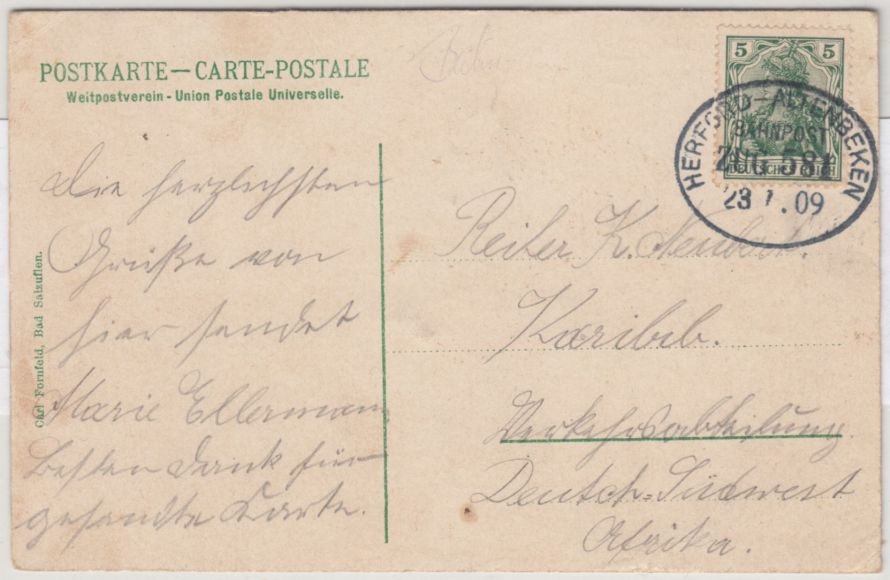 POSTKARTE — CARTE-POSTALE
Weltpostverein - Union Postale Universelle.
5 5
DEUTSCHES REICH
HERFORD - ALTENBEKEN
BAHNPOST
ZUG 581
23 7 . 09
Die herzlichsten
Grüße von
hier sendet
Marie Ellermann
Besten Dank für
gesandte Karte.
Carl Fornfeld, Bad Salzuflen.
Reiter K.
Karibib.
Verkehrsabteilung
Deutch=Südwest
Afrika.